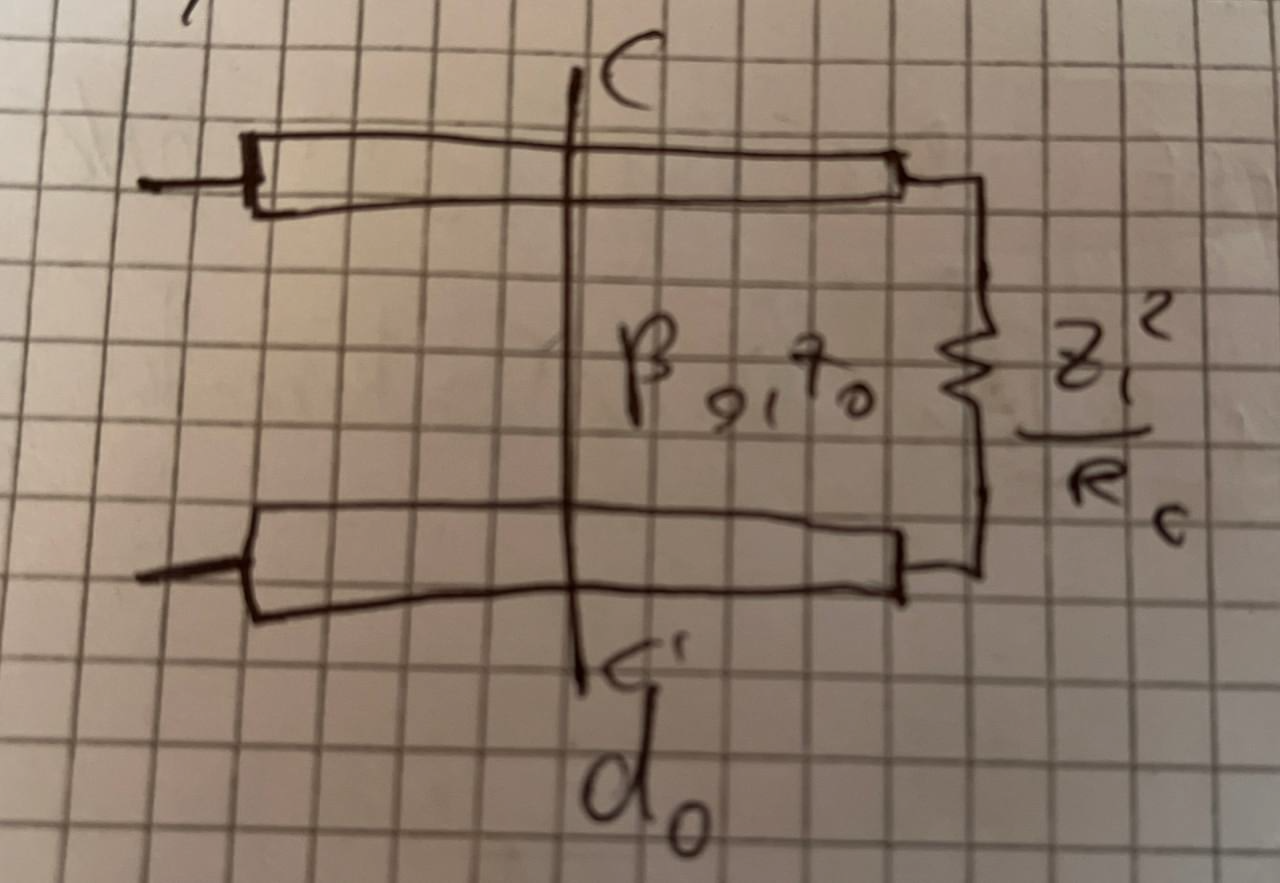 C
β₀, z₀
Z₁²
R_c
C'
d₀